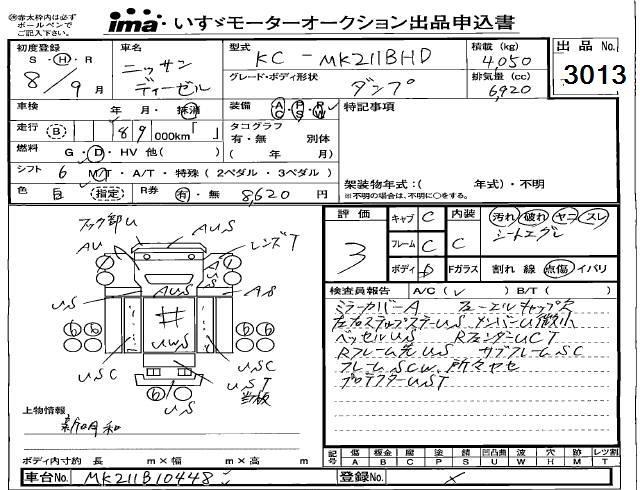 ※赤太枠内は必ず
ボールペンで
ご記入下さい。
ima・いすゞモーターオークション出品申込書
初度登録
S・H・R
8/9月
車名
ニッサン
ディーゼル
型式
KC-MK211BHD
グレード・ボディ形状
ダンプ
積載(kg)
4050
排気量(cc)
6920
出品No.
3013
車検 年 月・抹消
装備 AC・PS・PW
特記事項
走行 B 89 000km「 」
タコグラフ
有・無 別体
( 年 月)
燃料 G・D・HV 他( )
シフト 6 M/T・A/T・特殊(2ペダル・3ペダル)
色 白 指定 R券 有・無 8,620 円
架装物年式:( 年式)・不明
※不明の場合は、不明に○をする。
評価
3
キャブ C
フレーム C
ボディ D
内装 C
汚れ・破れ・ヤニ・スレ
シートエグレ
Fガラス 割れ 線 点傷・イバリ
検査員報告 A/C(✓) B/T( )
ミラーカバーA フューエルキャップ欠
左右ステップステーUS メンバーU
ベッセルUS RフェンダーUCT
Rフレーム先US サブフレームSC
フレームSCW. 所々ヤセ
プロテクターUST
フック部U
AUS
AU
レンズT
AUS
US
AS
UWS
USC
USC
UST
当板
US
上物情報
新明和
ボディ内寸約 長 m×幅 m×高 m
記号 傷 板金 腐 塗 錆 凹凸曲 波 穴 跡 レツ割
A B C P S U W H M T
車台No. MK211B10448
登録No. ×